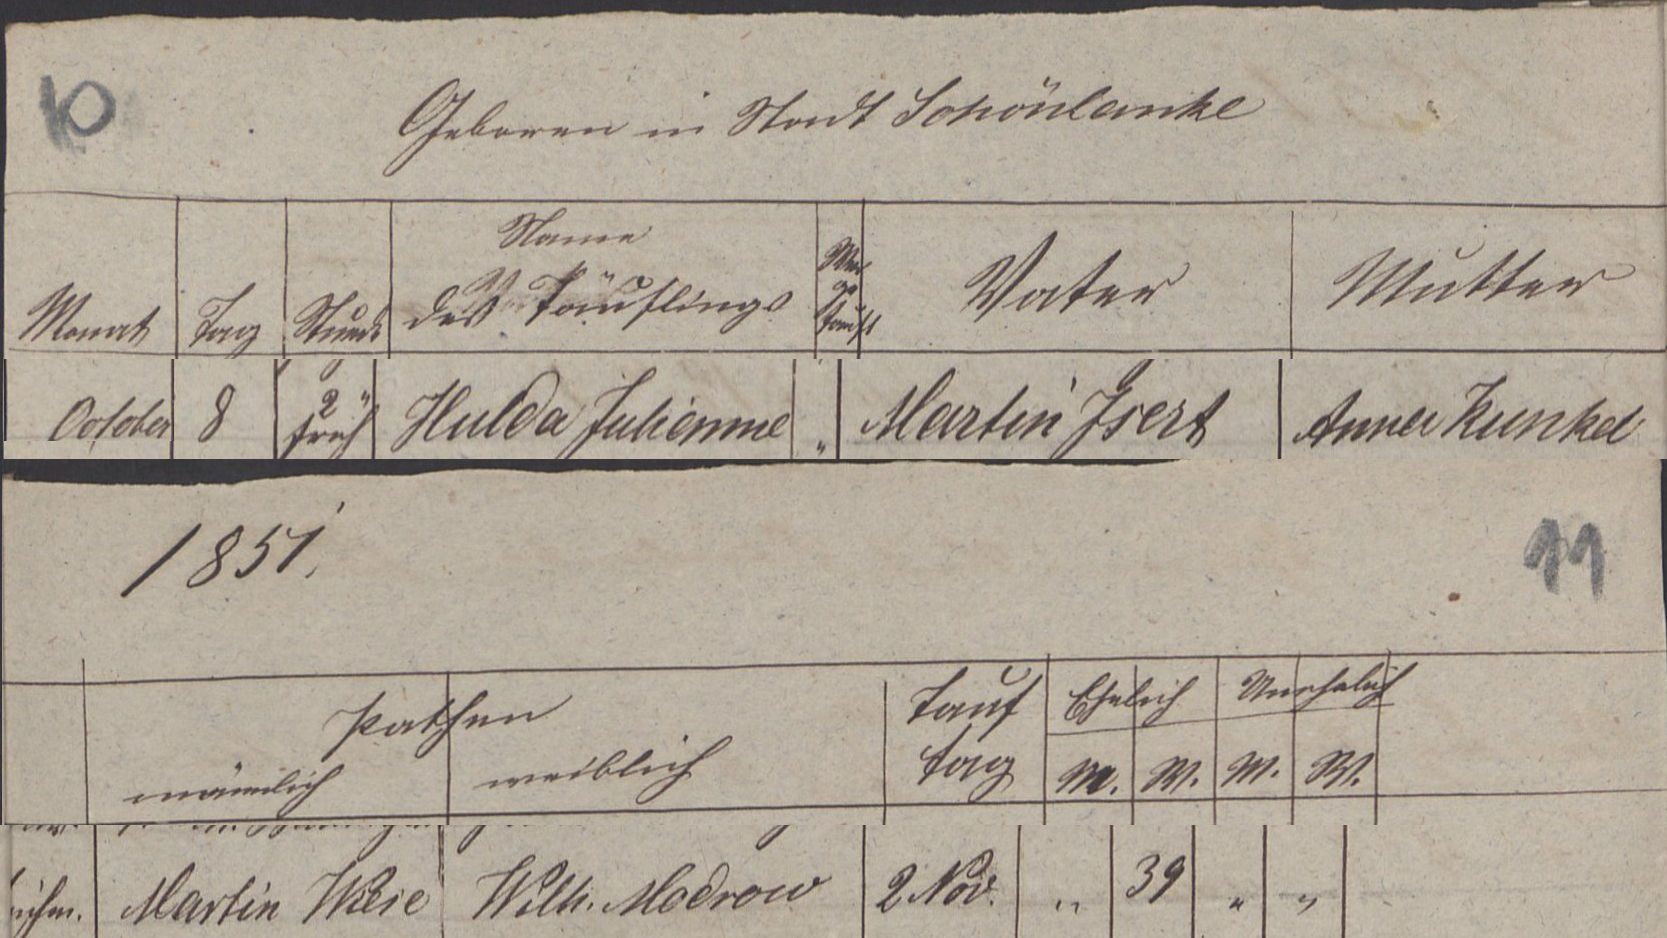 10
Geboren in Stadt Schönlanke
Monat Tag Stunde Name des Täuflings Wer getauft Vater Mutter
October 8 2 früh Hulda Julianne " Martin Isert Anna Kunkel
1851. 11
Pathen Tauf Ehelich Unehelich
männlich weiblich tag M. W. M. W.
Martin Wiese Wilh. Modrow 2 Nov. " 39 " "